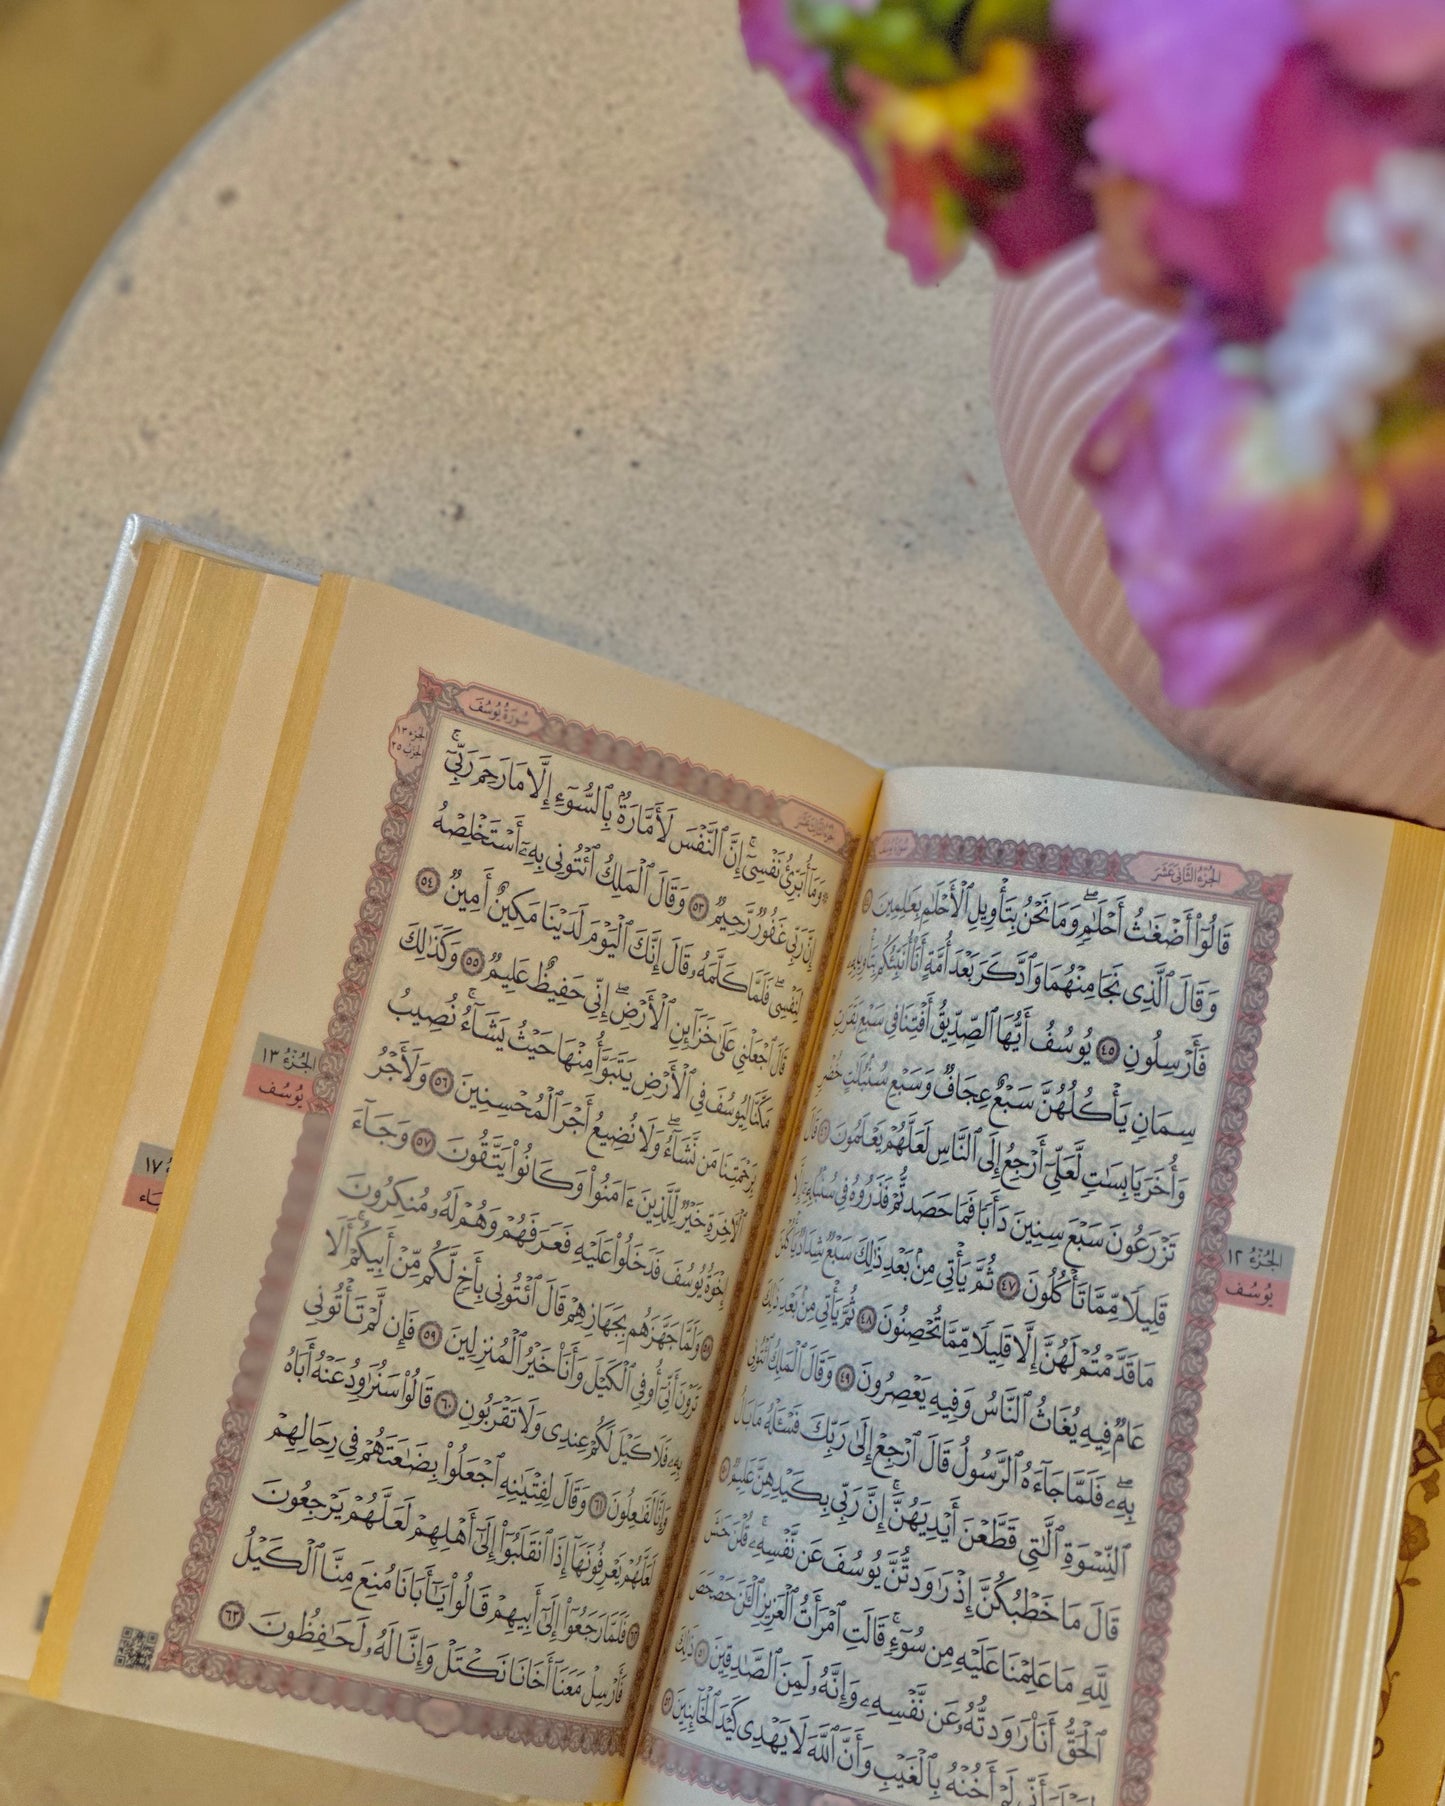 الجُزْءُ الثَّانِي عَشَرَ
سُورَةُ يُوسُفَ
قَالُوٓاْ أَضۡغَٰثُ أَحۡلَٰمٖۖ وَمَا نَحۡنُ بِتَأۡوِيلِ ٱلۡأَحۡلَٰمِ بِعَٰلِمِينَ ٤٤
وَقَالَ ٱلَّذِي نَجَا مِنۡهُمَا وَٱدَّكَرَ بَعۡدَ أُمَّةٍ أَنَا۠ أُنَبِّئُكُم بِتَأۡوِيلِهِۦ
فَأَرۡسِلُونِ ٤٥ يُوسُفُ أَيُّهَا ٱلصِّدِّيقُ أَفۡتِنَا فِي سَبۡعِ بَقَرَٰتٖ
سِمَانٖ يَأۡكُلُهُنَّ سَبۡعٌ عِجَافٞ وَسَبۡعِ سُنۢبُلَٰتٍ خُضۡرٖ
وَأُخَرَ يَابِسَٰتٖ لَّعَلِّيٓ أَرۡجِعُ إِلَى ٱلنَّاسِ لَعَلَّهُمۡ يَعۡلَمُونَ ٤٦ قَالَ
تَزۡرَعُونَ سَبۡعَ سِنِينَ دَأَبٗا فَمَا حَصَدتُّمۡ فَذَرُوهُ فِي سُنۢبُلِهِۦٓ إِلَّا
قَلِيلٗا مِّمَّا تَأۡكُلُونَ ٤٧ ثُمَّ يَأۡتِي مِنۢ بَعۡدِ ذَٰلِكَ سَبۡعٞ شِدَادٞ يَأۡكُلۡنَ
مَا قَدَّمۡتُمۡ لَهُنَّ إِلَّا قَلِيلٗا مِّمَّا تُحۡصِنُونَ ٤٨ ثُمَّ يَأۡتِي مِنۢ بَعۡدِ ذَٰلِكَ
عَامٞ فِيهِ يُغَاثُ ٱلنَّاسُ وَفِيهِ يَعۡصِرُونَ ٤٩ وَقَالَ ٱلۡمَلِكُ ٱئۡتُونِي
بِهِۦۖ فَلَمَّا جَآءَهُ ٱلرَّسُولُ قَالَ ٱرۡجِعۡ إِلَىٰ رَبِّكَ فَسۡـَٔلۡهُ مَا بَالُ
ٱلنِّسۡوَةِ ٱلَّٰتِي قَطَّعۡنَ أَيۡدِيَهُنَّۚ إِنَّ رَبِّي بِكَيۡدِهِنَّ عَلِيمٞ ٥٠
قَالَ مَا خَطۡبُكُنَّ إِذۡ رَٰوَدتُّنَّ يُوسُفَ عَن نَّفۡسِهِۦۚ قُلۡنَ حَٰشَ
لِلَّهِ مَا عَلِمۡنَا عَلَيۡهِ مِن سُوٓءٖۚ قَالَتِ ٱمۡرَأَتُ ٱلۡعَزِيزِ ٱلۡـَٰٔنَ حَصۡحَصَ
ٱلۡحَقُّ أَنَا۠ رَٰوَدتُّهُۥ عَن نَّفۡسِهِۦ وَإِنَّهُۥ لَمِنَ ٱلصَّٰدِقِينَ ٥١ ذَٰلِكَ
لِيَعۡلَمَ أَنِّي لَمۡ أَخُنۡهُ بِٱلۡغَيۡبِ وَأَنَّ ٱللَّهَ لَا يَهۡدِي كَيۡدَ ٱلۡخَآئِنِينَ ٥٢
الجُزْءُ ١٢
يُوسُف
الجُزْءُ الثَّالِثَ عَشَرَ
سُورَةُ يُوسُفَ
الجُزْء ١٣
الحِزْبُ ٢٥
۞وَمَآ أُبَرِّئُ نَفۡسِيٓۚ إِنَّ ٱلنَّفۡسَ لَأَمَّارَةُۢ بِٱلسُّوٓءِ إِلَّا مَا رَحِمَ رَبِّيٓۚ
إِنَّ رَبِّي غَفُورٞ رَّحِيمٞ ٥٣ وَقَالَ ٱلۡمَلِكُ ٱئۡتُونِي بِهِۦٓ أَسۡتَخۡلِصۡهُ
لِنَفۡسِيۖ فَلَمَّا كَلَّمَهُۥ قَالَ إِنَّكَ ٱلۡيَوۡمَ لَدَيۡنَا مَكِينٌ أَمِينٞ ٥٤
قَالَ ٱجۡعَلۡنِي عَلَىٰ خَزَآئِنِ ٱلۡأَرۡضِۖ إِنِّي حَفِيظٌ عَلِيمٞ ٥٥ وَكَذَٰلِكَ
مَكَّنَّا لِيُوسُفَ فِي ٱلۡأَرۡضِ يَتَبَوَّأُ مِنۡهَا حَيۡثُ يَشَآءُۚ نُصِيبُ
بِرَحۡمَتِنَا مَن نَّشَآءُۖ وَلَا نُضِيعُ أَجۡرَ ٱلۡمُحۡسِنِينَ ٥٦ وَلَأَجۡرُ
ٱلۡأٓخِرَةِ خَيۡرٞ لِّلَّذِينَ ءَامَنُواْ وَكَانُواْ يَتَّقُونَ ٥٧ وَجَآءَ
إِخۡوَةُ يُوسُفَ فَدَخَلُواْ عَلَيۡهِ فَعَرَفَهُمۡ وَهُمۡ لَهُۥ مُنكِرُونَ
٥٨ وَلَمَّا جَهَّزَهُم بِجَهَازِهِمۡ قَالَ ٱئۡتُونِي بِأَخٖ لَّكُم مِّنۡ أَبِيكُمۡۚ أَلَا
تَرَوۡنَ أَنِّيٓ أُوفِي ٱلۡكَيۡلَ وَأَنَا۠ خَيۡرُ ٱلۡمُنزِلِينَ ٥٩ فَإِن لَّمۡ تَأۡتُونِي
بِهِۦ فَلَا كَيۡلَ لَكُمۡ عِندِي وَلَا تَقۡرَبُونِ ٦٠ قَالُواْ سَنُرَٰوِدُ عَنۡهُ أَبَاهُ
وَإِنَّا لَفَٰعِلُونَ ٦١ وَقَالَ لِفِتۡيَٰنِهِ ٱجۡعَلُواْ بِضَٰعَتَهُمۡ فِي رِحَالِهِمۡ
لَعَلَّهُمۡ يَعۡرِفُونَهَآ إِذَا ٱنقَلَبُوٓاْ إِلَىٰٓ أَهۡلِهِمۡ لَعَلَّهُمۡ يَرۡجِعُونَ
٦٢ فَلَمَّا رَجَعُوٓاْ إِلَىٰٓ أَبِيهِمۡ قَالُواْ يَٰٓأَبَانَا مُنِعَ مِنَّا ٱلۡكَيۡلُ
فَأَرۡسِلۡ مَعَنَآ أَخَانَا نَكۡتَلۡ وَإِنَّا لَهُۥ لَحَٰفِظُونَ ٦٣
الجُزْءُ ١٣
يُوسُف
١٧